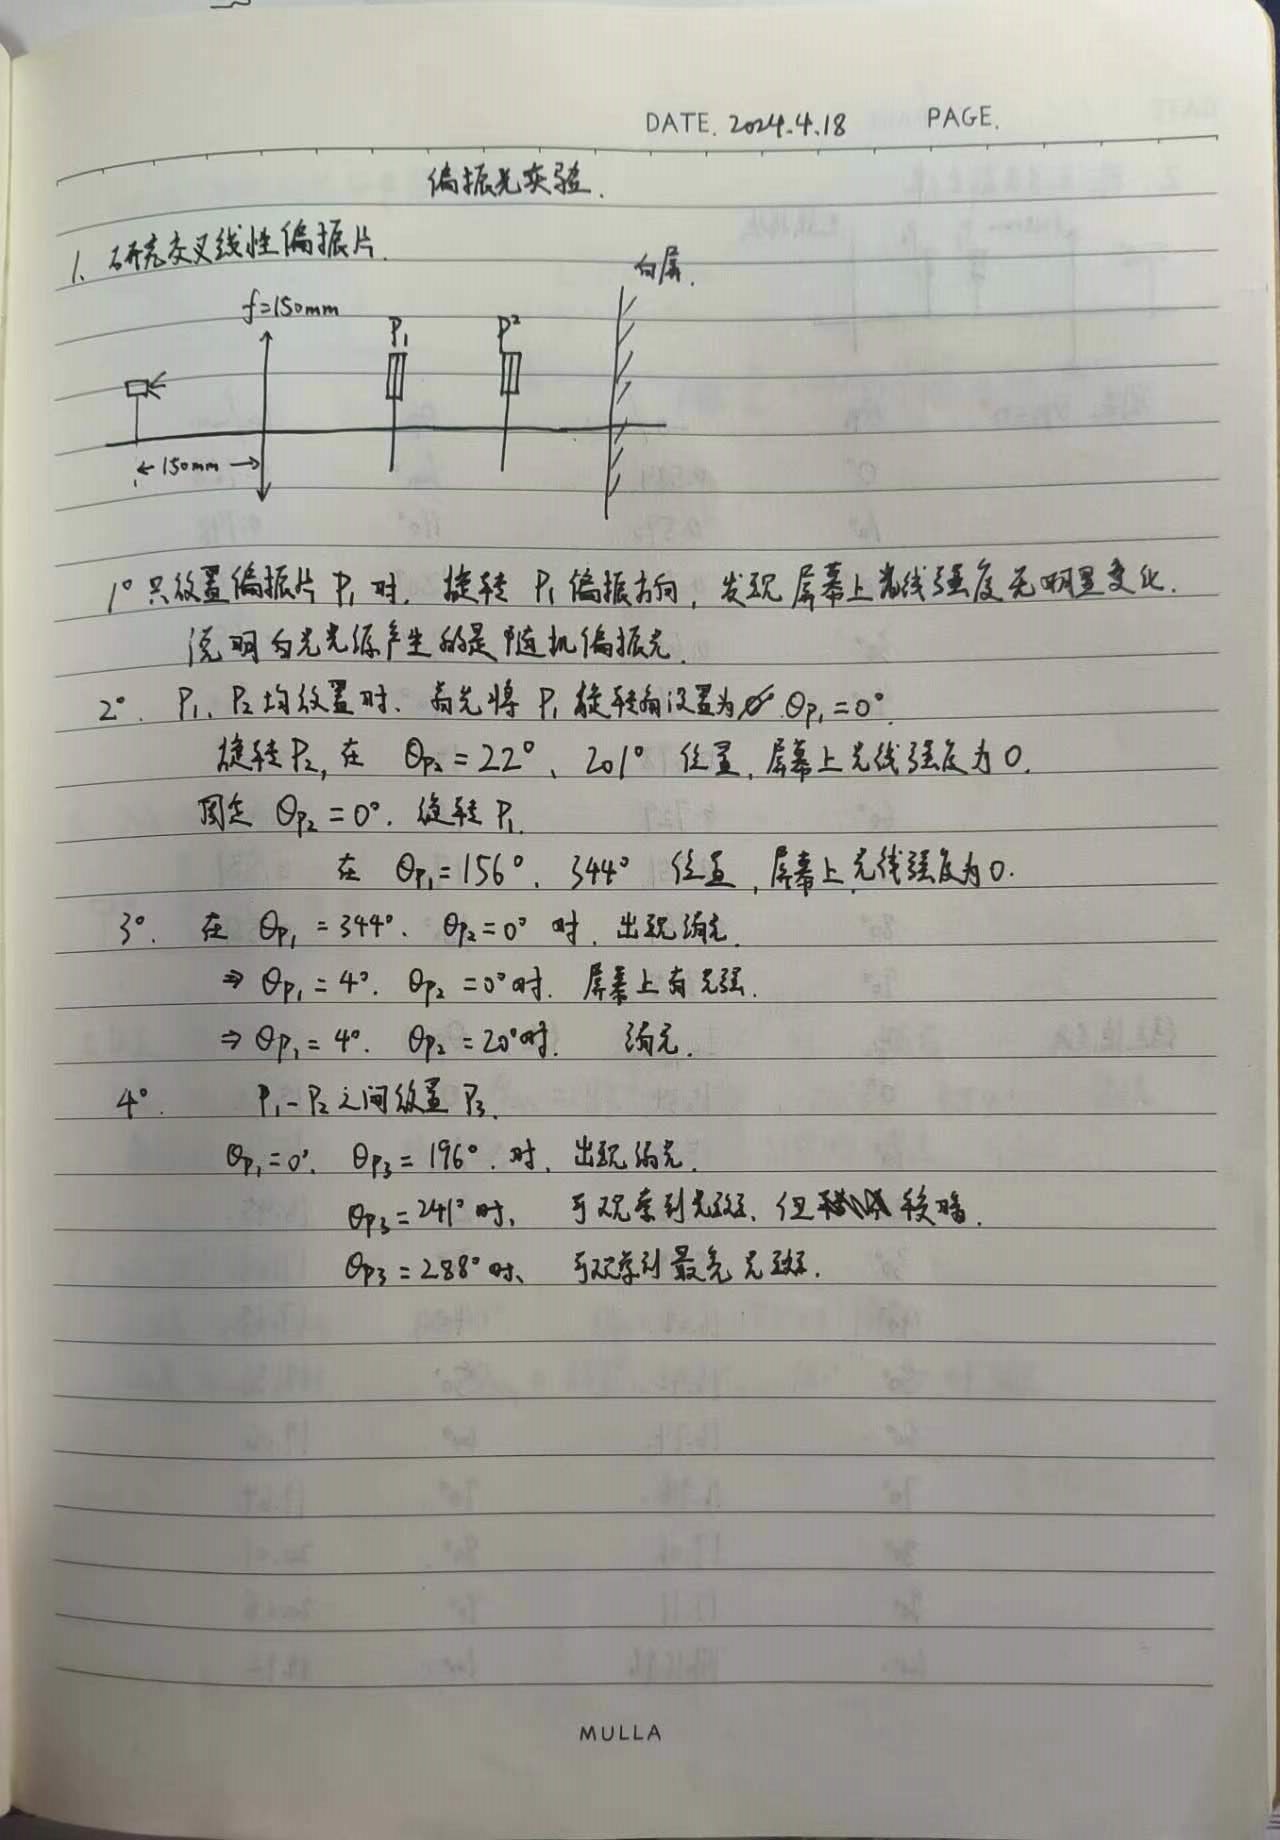 DATE. 2024.4.18 PAGE.
偏振光实验.
1. 研究交叉线性偏振片.
白屏.
f=150mm
P₁
P²
← 150mm →
1° 只放置偏振片 P₁ 时, 旋转 P₁ 偏振方向, 发现屏幕上光线强度无明显变化.
说明白光光源产生的是随机偏振光.
2°. P₁、P₂ 均放置时、首先将 P₁ 旋转角设置为 θp₁ = 0°.
旋转P₂, 在 θp₂ = 22°、201° 位置, 屏幕上光线强度为 0.
固定 θp₂ = 0°. 旋转 P₁.
在 θp₁ = 156°、344° 位置, 屏幕上光线强度为 0.
3°. 在 θp₁ = 344°. θp₂ = 0° 时, 出现消光.
⇒ θp₁ = 4°. θp₂ = 0° 时. 屏幕上有光强.
⇒ θp₁ = 4°. θp₂ = 20° 时. 消光.
4°. P₁-P₂ 之间放置 P₃.
θp₁ = 0°. θp₃ = 196°. 时, 出现消光.
θp₃ = 241° 时, 可观察到光斑、但较暗.
θp₃ = 288° 时、可观察到最亮光斑.
MULLA